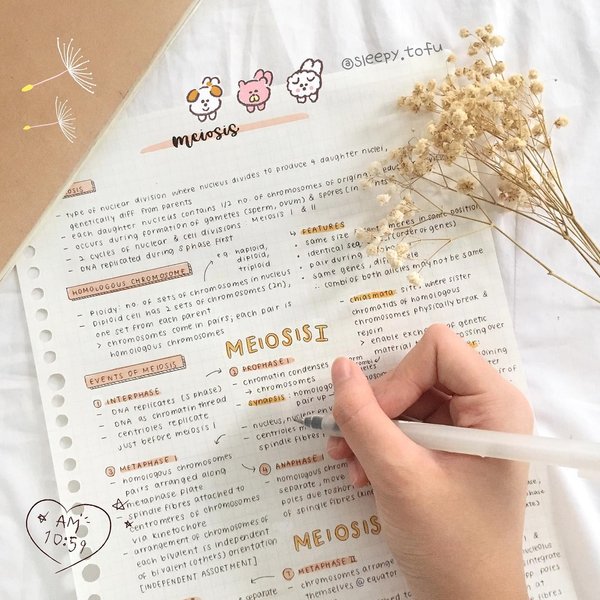 @sleepy.tofu
meiosis
- type of nuclear division where nucleus divides to produce 4 daughter nuclei,
genetically diff from parents
- each daughter nucleus contains 1/2 no. of chromosomes of origin
- occurs during formation of gametes (sperm, ovum) & spores (in
- 2 cycles of nuclear & cell divisions: Meiosis I & II
- DNA replicated during S phase first
HOMOLOGOUS CHROMOSOME
e.g. haploid,
diploid,
triploid
- Ploidy: no. of sets of chromosomes in nucleus
- Diploid cell has 2 sets of chromosomes (2n),
one set from each parent
> chromosomes come in pairs, each pair is
homologous chromosomes
FEATURES
• same size
in same position
• identical
(order of genes)
• pair during
• same genes,
∴ combi of both alleles may not be same
chiasmata: site where sister
chromatids of homologous
chromosomes physically break &
rejoin
> enable exchange of genetic
material
crossing over
MEIOSIS I
EVENTS OF MEIOSIS
① INTERPHASE
- DNA replicates (S phase)
- DNA as chromatin thread
- centrioles replicate
just before meiosis I
② PROPHASE I
- chromatin condenses
→ chromosomes
- synapsis: homologous
pair up
- nucleus, nuclear
- centrioles
spindle fibres
③ METAPHASE I
- homologous chromosomes
pairs arranged along
metaphase plate
- spindle fibres attached to
centromeres of chromosomes
via kinetochore
- arrangement of chromosomes of
each bivalent is independent
of bivalent (others) orientation
[INDEPENDENT ASSORTMENT]
④ ANAPHASE I
- homologous
separate, move
poles due to
of spindle fibres
MEIOSIS
⑦ METAPHASE II
- chromosomes arrange
themselves @ equator
AM
10:59